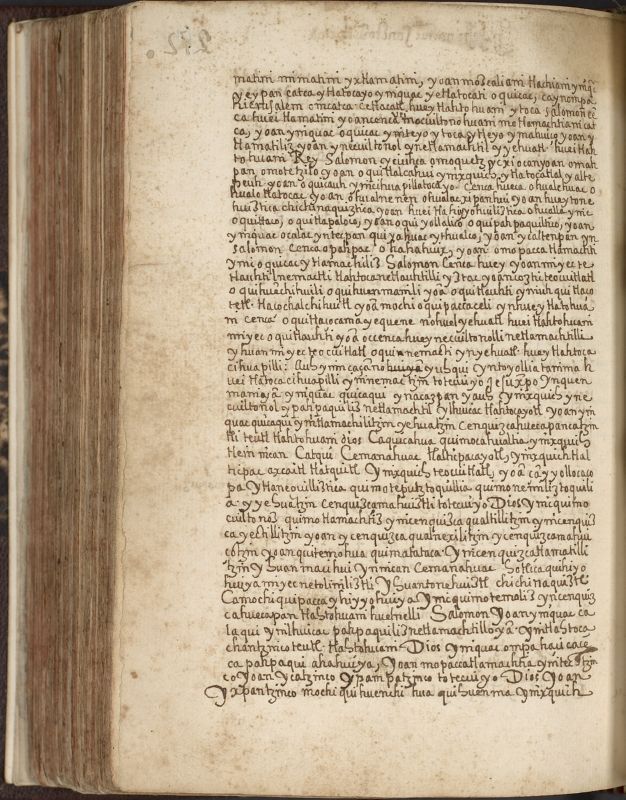 matini mimatini yxtlamatini, yoan mozcaliani tlachiani ymiq̃
y eypan catca ytlatocayo ymquac y etlatocati oquicac, ca yn ompa
hierusalem omcatca ce tlacatl, huey tlahtohuani ytoca salomon ce
ca huei tlamatini yoan cenca mocuiltonohuani motlamachtiani cat
ca, yoan ymquac oquicac ymteyo ytoca ytleyo ymahuico yoan y
tlamatiliz yoan ynecuiltonol ynetlamachtil yyehuatl huei tlah
tohuani Rey Salomon
pan omotetzilo yoan oquitlalcahui ymixquich ytlatocatlal yalte
peuh yoan oquicauh ymicihuapillatoca yo cenca hueca ohualehuac o
hualotlatocac yoan ohualnenen ohualacxipanhui yoan huaytone
huiztica chichinaquiztica yoan huei tlahiyohuiliztica ohualla ymic
oquittaco, oquitlapaloco, yoan oquiyollalico oquipahpaquiltico, yoan
ymquac ocalac yntecpan quiyahuac ythualco, yoan ycaltenpan yn
salomon cenca opahpac otlatlahuix, yoan omopacca tlamachti
ymioquicac ytlamachiliz Salomon cenca huey yoan miyec te
tlauhtilnemactli tlahtoca netlauhtilli yztac yoan coztic teocuitlatl
oquihualchihuili oquihuenmanili yoā oquitlauhti ymiuhqui tlaço
tetl tlaçochalchihuitl yoā mochi oquipaccaceli yn huey tlahtohua
ni cenca oquitlaçocama yequene no yhuel yehuatl huei tlahtohuani
miyec oquitlauhti yoā occenca huey necuiltonolli netlamachtilli
yhuan miyec teocuitlatl oquinemacti yn yehuatl huey tlahtoca
cihuapilli: Auh ynin ca çano huiyā yuhqui yntoyollia tanima h
uei tlatoca cihuapilli ymnemactzin totecuiyo Jesuxpo Ynquen
maniā ymquac quicaqui ynacazpan yauh ymixquich yne
cuiltonol ypanpaquiliz netlamachtil ylhuicac tlahtocayotl yoan ym
quac quicaqui ymtlamachilitzin yehuatzin cenquizcahuecapancatzin
tli teutl tlahtohuani dios caquicahua quimocahualtia ymixquich
tlein nican catqui cemanahuac tlalticpacayotl, ymixquich tlal
ticpac axcaitl tlatquitl ymixquich teocuitlatl, yoā
pa ytlaneouilliztica quimotepotztoquillia quimonemiliztoquili
a y yehuatzin cenquizcamahuiztli totecuiyo Dios ymiquimo
cuiltonoz quimotlamachtiz ynicenquizca qualtillitzin ynicenquiz
ca yectillitzin yoan ycenquizca qualnexilitzin ycenquizcamahui
çotzin yoan quitemohua quimatataca ynicenquizcatlamatilli
tzin yhuan mauhui ynnican cemanahuac
huiya miyec netoliniliztli yhuan tonehuiztl chichinaquiztl
camochi quipacca yhiyyohuiya ymiquimotemoliz ynicenquiz
cahuecapan tlahtohuani huelnelli Salomon yoan ymquac ca
laqui ymilhuicac pahpaquiliz netlamachtilloyā ymtlahtoca
chantzinco teutl tlahtohuani Dios ymquac ompa
ca pahpaqui ahahuiya, yoan mopaccatlamachtia
co yoan ycatzinco ypampatzinco totecuiyo Dios yoan
yxpantzinco mochi quihuenchihua quihuenma ymixquich